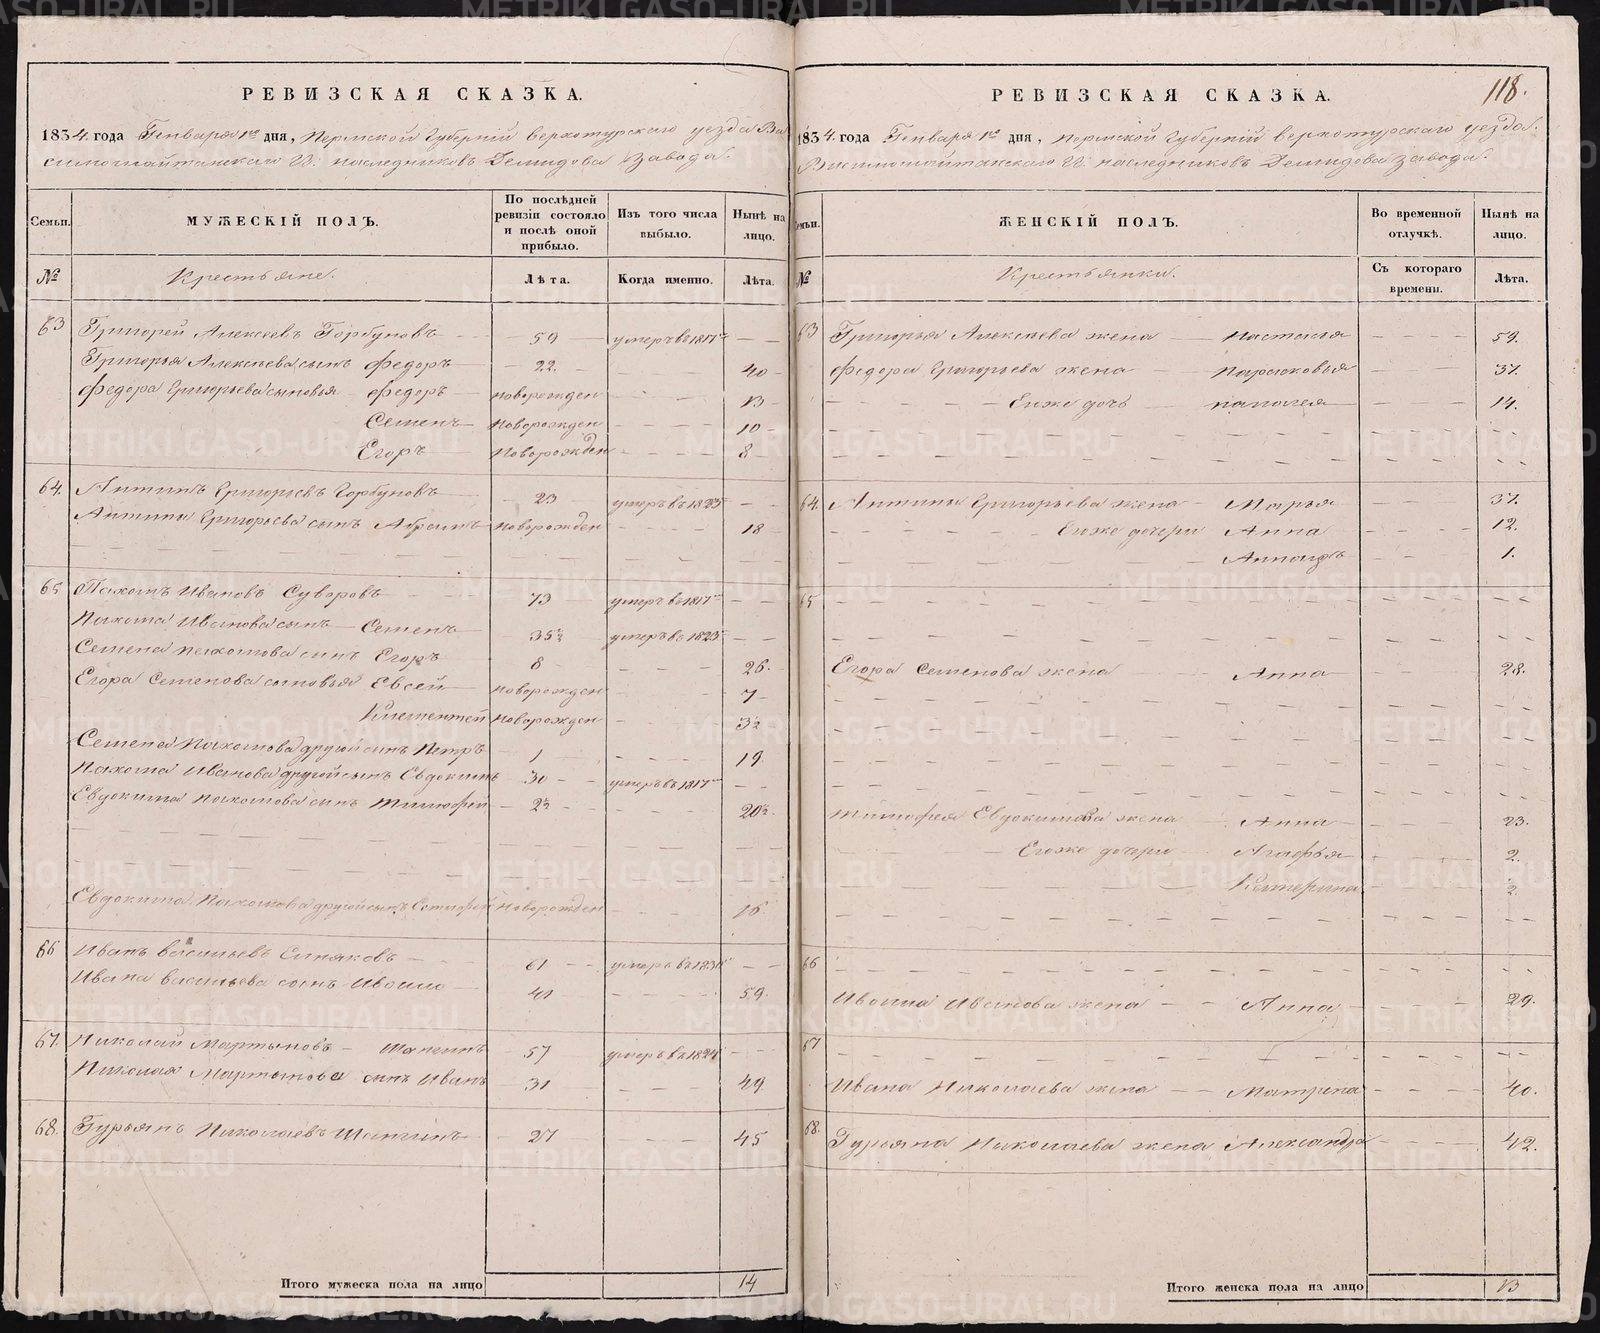 РЕВИЗСКАЯ СКАЗКА.
1834. года Генваря 1го дня, Пермской Губернiй верхотурскаго уезда Ва
симошайтанскаго Гг: наследниковъ Демидова завода.
Семьи.
МУЖЕСКІЙ ПОЛЪ.
По послѣдней ревизіи состояло и послѣ оной прибыло.
Изъ того числа выбыло.
Нынѣ на лицо.
№
Крестьяне.
Лѣта.
Когда именно.
Лѣта.
63 Григорей Алексеевъ Горбуновъ 59 умеръ въ 1817
Григорья Алексеева сынъ Федоръ 22. 40
Федора Григорьева сыновья Федоръ новорожден 13
Семенъ новорожден 10
Егоръ новорожден 8
64. Антипъ Григорьевъ Горбуновъ 23 умеръ въ 1823
Антипы Григорьева сынъ Абрамъ новорожден 18
65 Пахомъ Ивановъ Суворовъ 73 умеръ въ 1817
Пахома Иванова сынъ Семенъ 35½ умеръ въ 1823
Семена Пахомова сынъ Егоръ 8 26.
Егора Семенова сыновья Евсей новорожден 7
Климентей новорожден 3½
Семена Пахомова другой сынъ Петръ 1 19.
Пахома Иванова другой сынъ Евдокимъ 30 умеръ въ 1817
Евдокима Пахомова сынъ Тимофей 2½ 20½.
Евдокима Пахомова другой сынъ новорожден 16
66 Иванъ Васильевъ Синяковъ 61 умеръ въ
Ивана Васильева сынъ Изоимо 41 59.
67. Николай Мартыновъ Шапгинъ 57 умеръ въ 1824
Николая Мартынова сынъ Иванъ 31 49
68. Гурьянъ Николаевъ Шапгинъ 27 45
Итого мужеска пола на лицо 14
118.
РЕВИЗСКАЯ СКАЗКА.
1834. года Генваря 1го дня, Пермской Губернiй верхотурскаго уезда.
Висимошайтанскаго Гг: наследниковъ Демидова завода.
Семьи.
ЖЕНСКІЙ ПОЛЪ.
Во временной отлучкѣ.
Нынѣ на лицо.
№
Крестьянки.
Съ котораго времени.
Лѣта.
63 Григорья Алексеева жена Настасья 59.
Федора Григорьева жена Парасковья 37.
Егоже дочь 14.
64. Антипы Григорьева жена Марья 37.
Егоже дочери Анна 12.
1.
65
Егора Семенова жена Анна 28.
Тимофея Евдокимова жена Анна 23.
Егоже дочери Агафья 2.
Катерина ½
66
Изоима Иванова жена Анна 29.
67
Ивана Николаева жена Матрена 40.
68. Гурьяна Николаева жена Александра 42.
Итого женска пола на лицо 13
METRIKI.GASO-URAL.RU